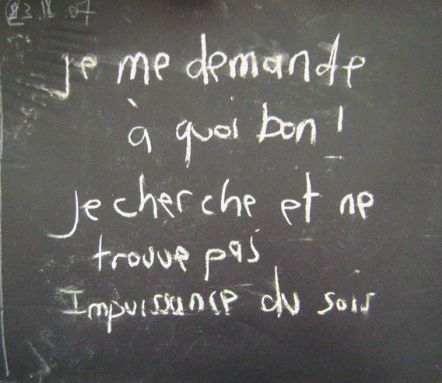 23.11.07
je me demande
à quoi bon !
Je cherche et ne
trouve pas
Impuissance du soir